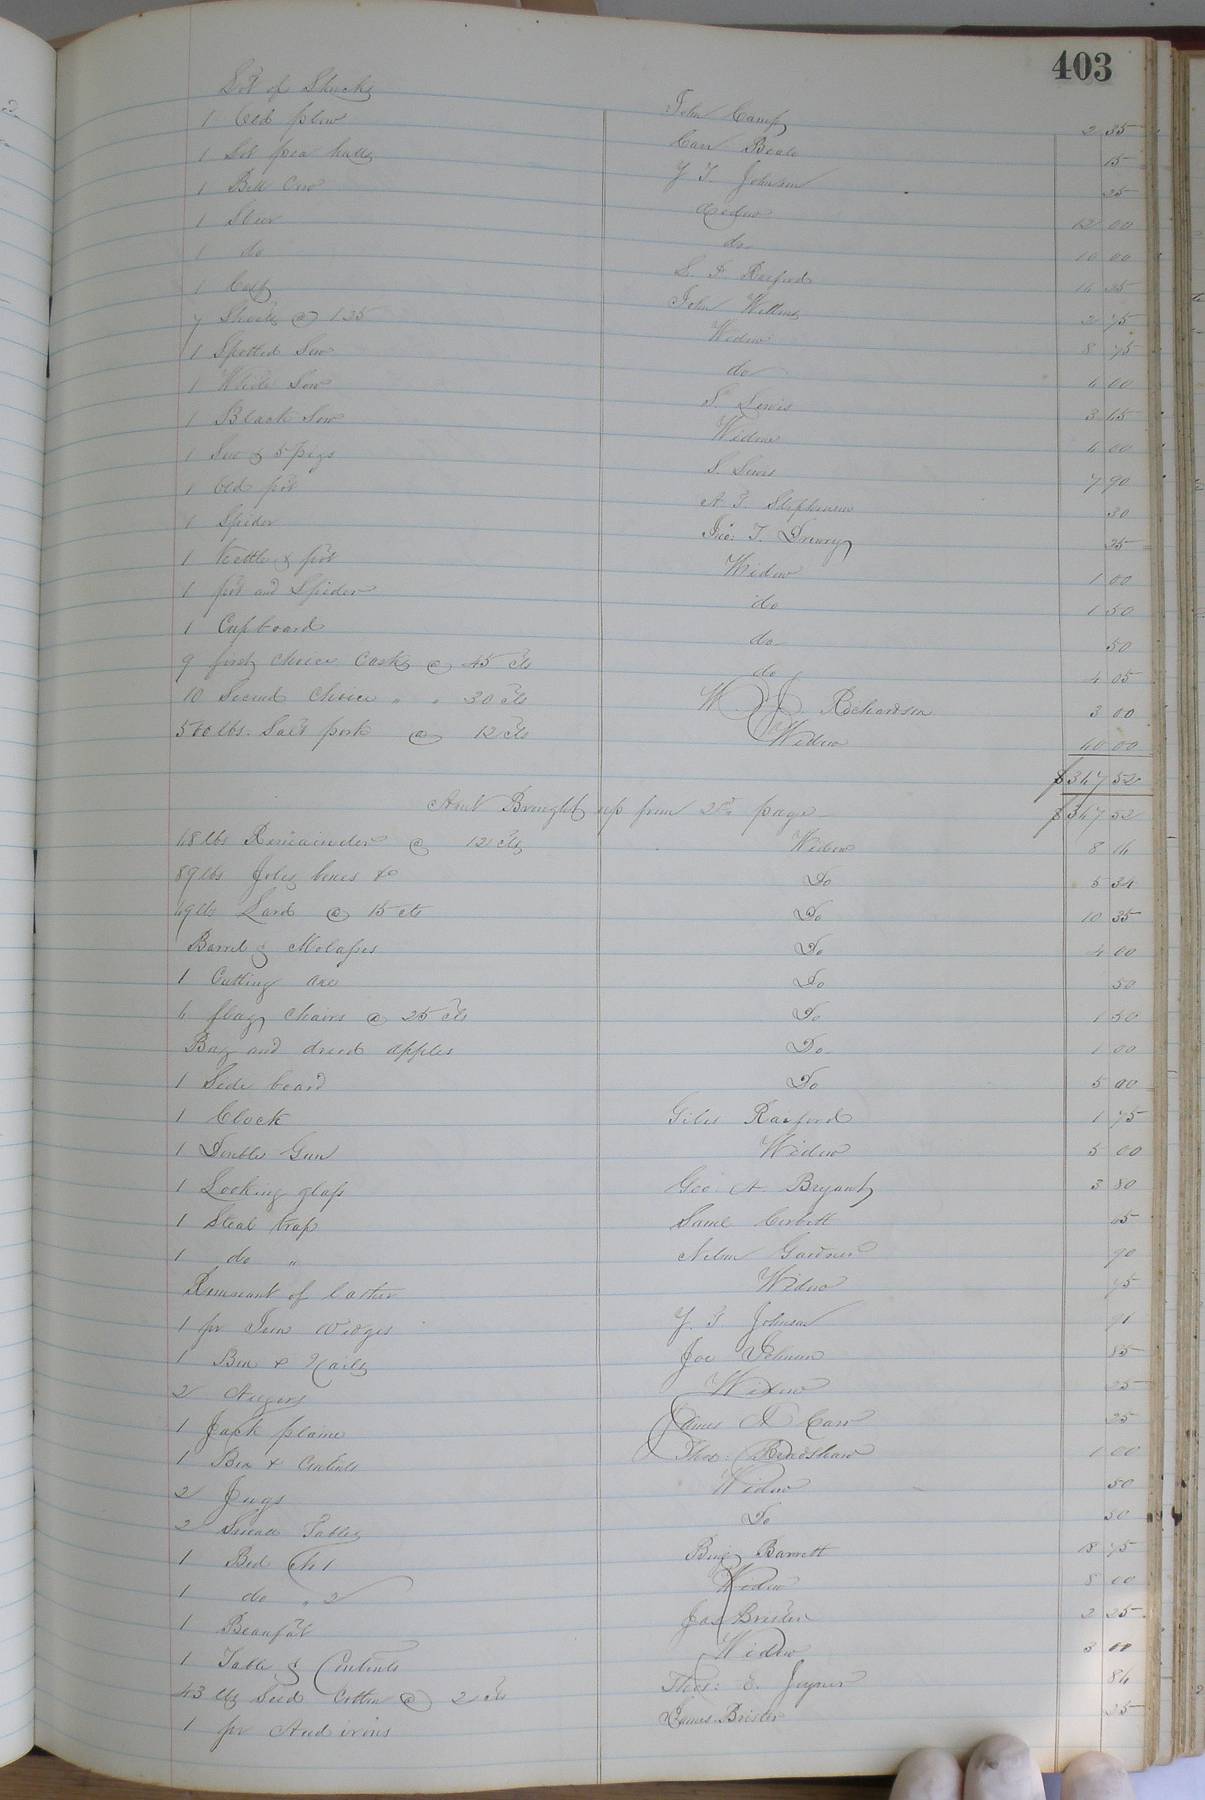 403
Lot of Shucks John Camp 2 35
1 Old plow Carr Beale 15
1 Lot pea hulls Y T. Johnson 25
1 Bell Cow Widow 12 00
1 Steer do 10 00
1 do L. F. Raiford 14 25
1 Calf John Wellons 2 75
7 Shoats @ 1 25 Widow 8 75
1 Spotted Sow do 4 00
1 White Sow S. Lewis 3 45
1 Black Sow Widow 4 00
1 Sow & 5 pigs S. Lewis 7 90
1 Old pot A. T. Stephenson 30
1 Spider Jno: T. Drewry 25
1 Kettle & pot Widow 1 00
1 pot and Spider do 1 50
1 Cupboard do 50
9 first choice Casks @ 45 cts do 4 05
10 Second Choice " " 30 cts W. J. Richardson 3 00
500 lbs. Salt pork @ 12 cts Widow 60 00
$347 52
Amt Brought up from 2d page $347 52
68 lbs Remainder @ 12 cts Widow 8 16
89 lbs Joles bones & Do 5 34
69 lbs Lard @ 15 cts Do 10 35
Barrel & Molasses Do 4 00
1 Cutting axe Do 50
6 flag Chairs @ 25 cts Do 1 50
Bag and dried apples Do 1 00
1 Side board Do 5 00
1 Clock Giles Raiford 1 75
1 Double Gun Widow 5 00
1 Looking glass Geo. A. Bryant 3 80
1 Steal trap Saml Corbett 65
1 do " Nelson Gardner 90
Remnant of leather Widow 75
1 pr Iron Wedges Y. T. Johnson 91
1 Box & Nails Joe 85
2 Augers Widow 25
1 Jack plaine James Carr 25
1 Box & Contents Thos: Bradshaw 1 00
2 Jugs Widow 50
2 Small Tables Do 50
1 Bed No 1 Benj Barrett 18 75
1 do " 2 Widow 8 00
1 Beaufat Jas Brister 2 25
1 Table & Contents Widow 3 00
43 lbs Seed Cotton @ 2 cts Thos: E. Joyner 86
1 pr And irons James Brister 25